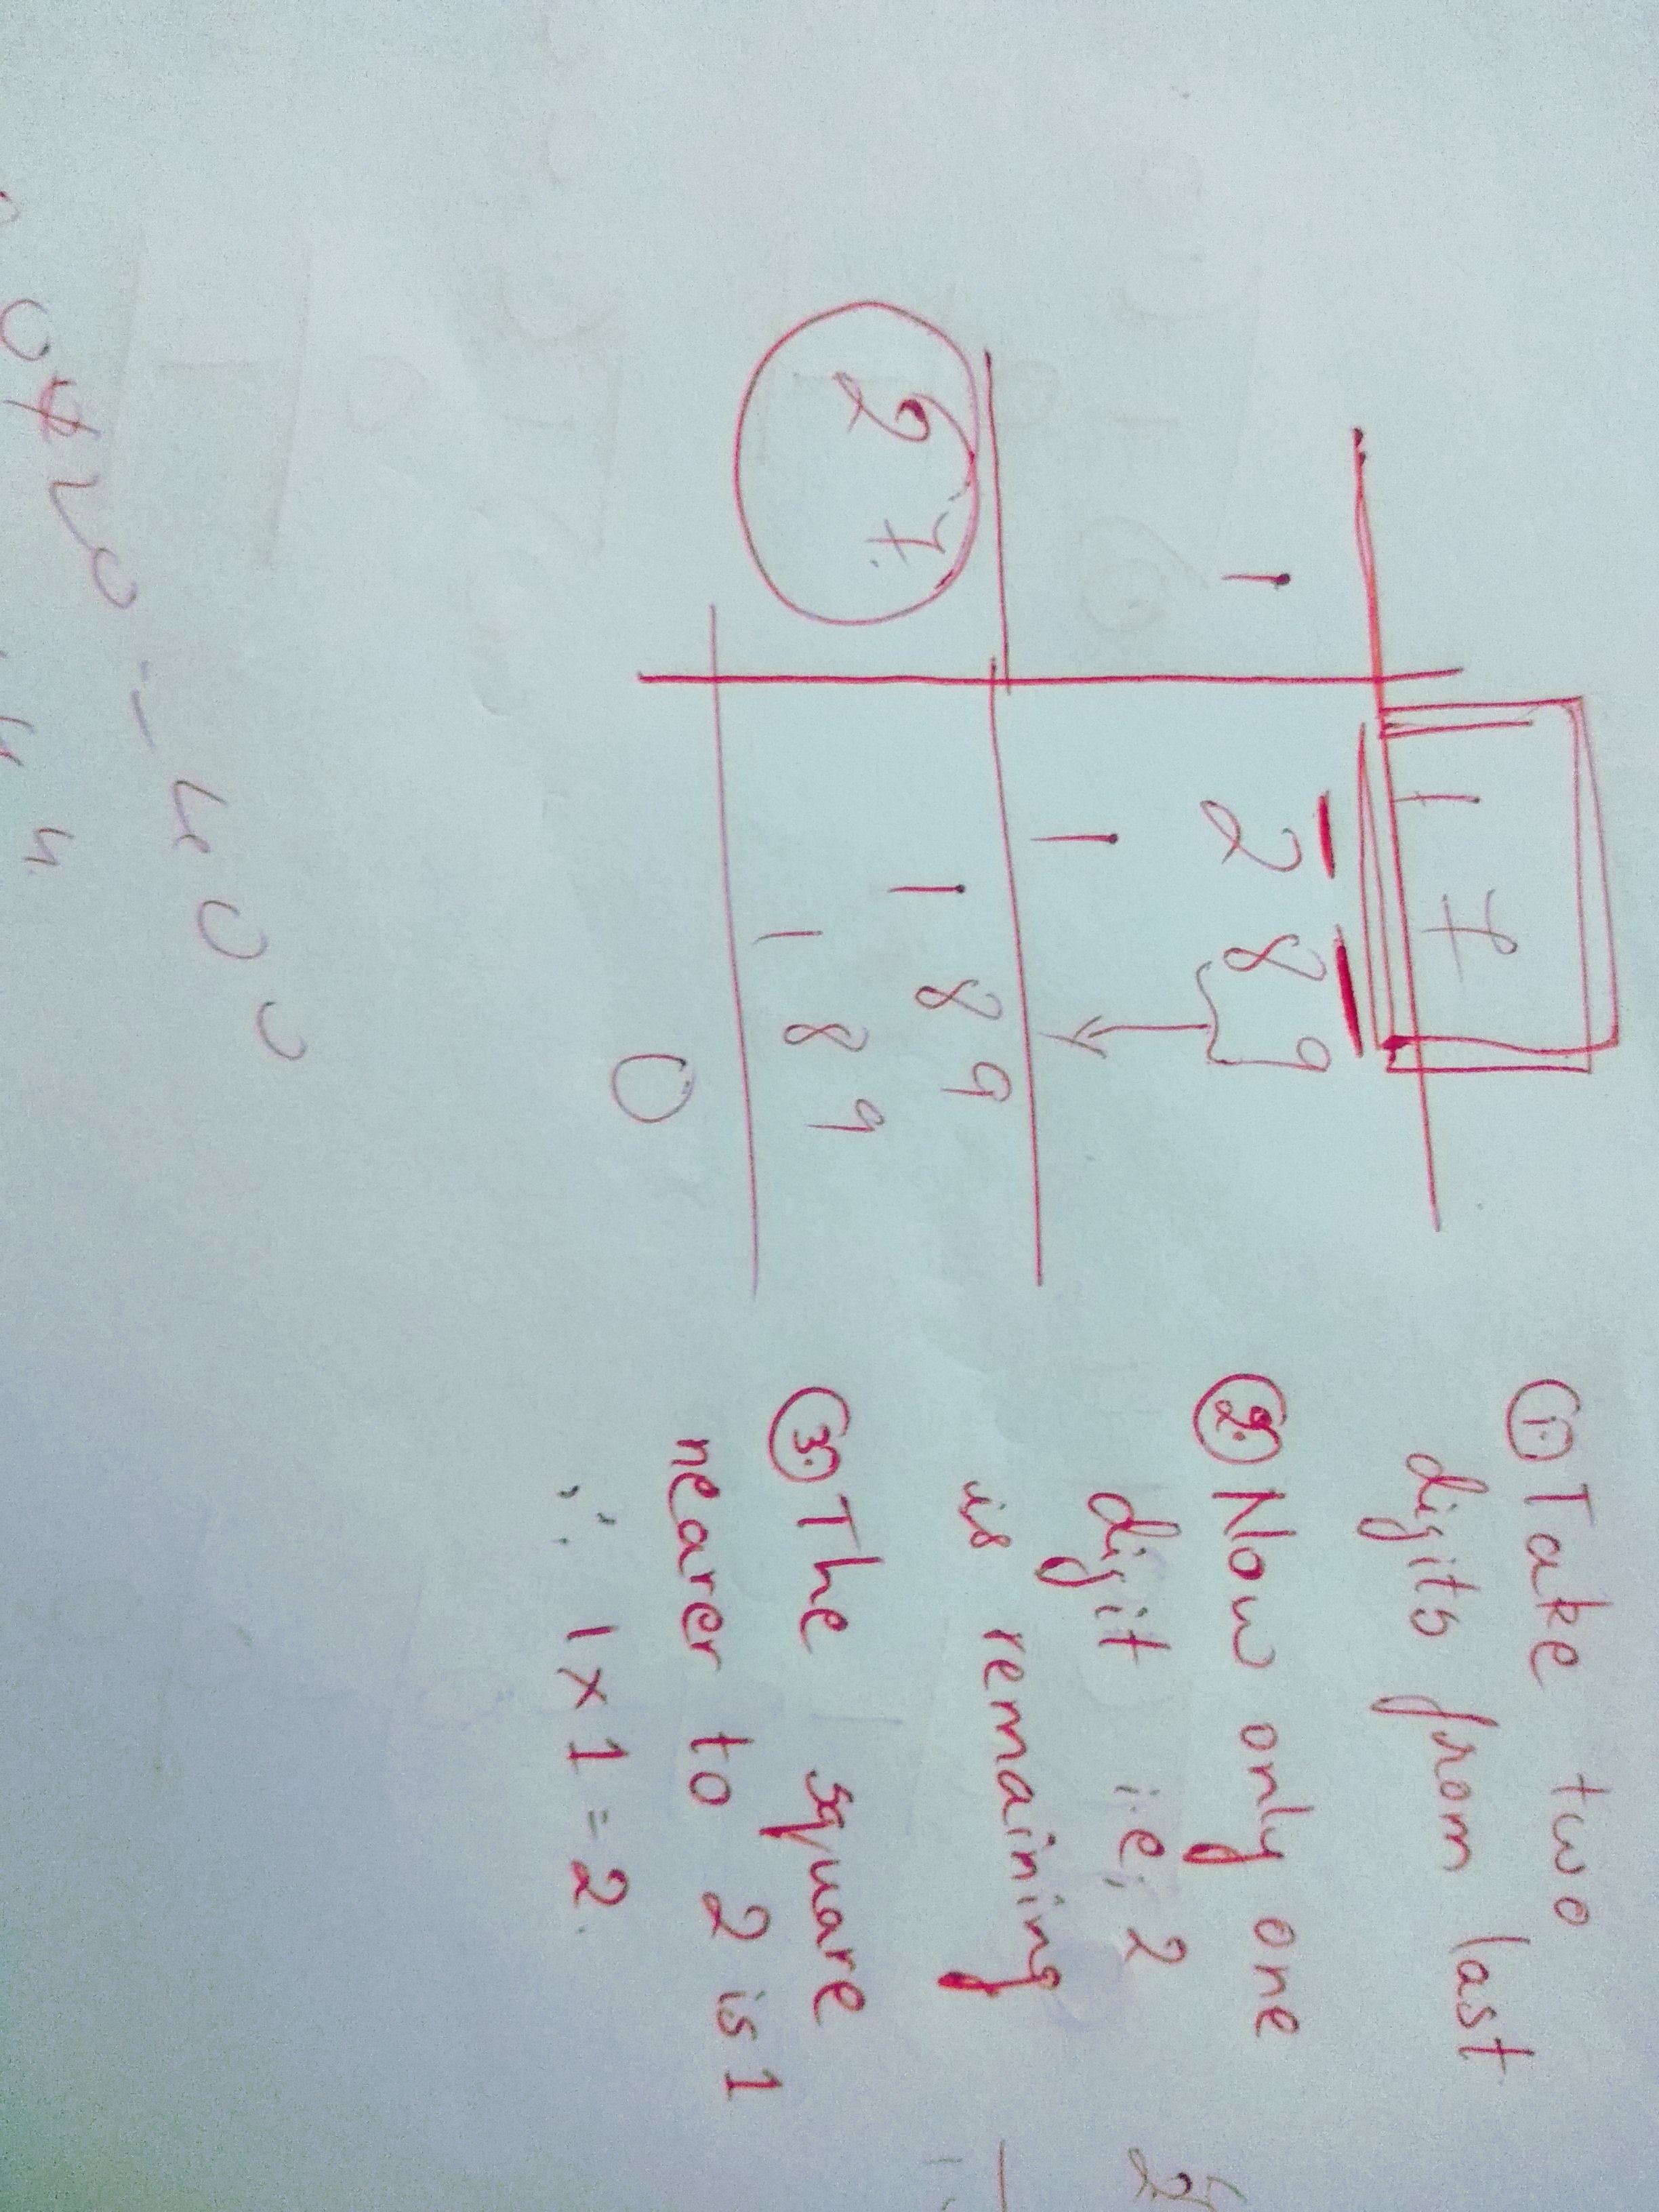 1 7
1 2 8 9
1
2 7 1 8 9
1 8 9
0
1. Take two
digits from last
2. Now only one
digit i.e, 2
is remaining
3. The square
nearer to 2 is 1
∵ 1 × 1 = 2.